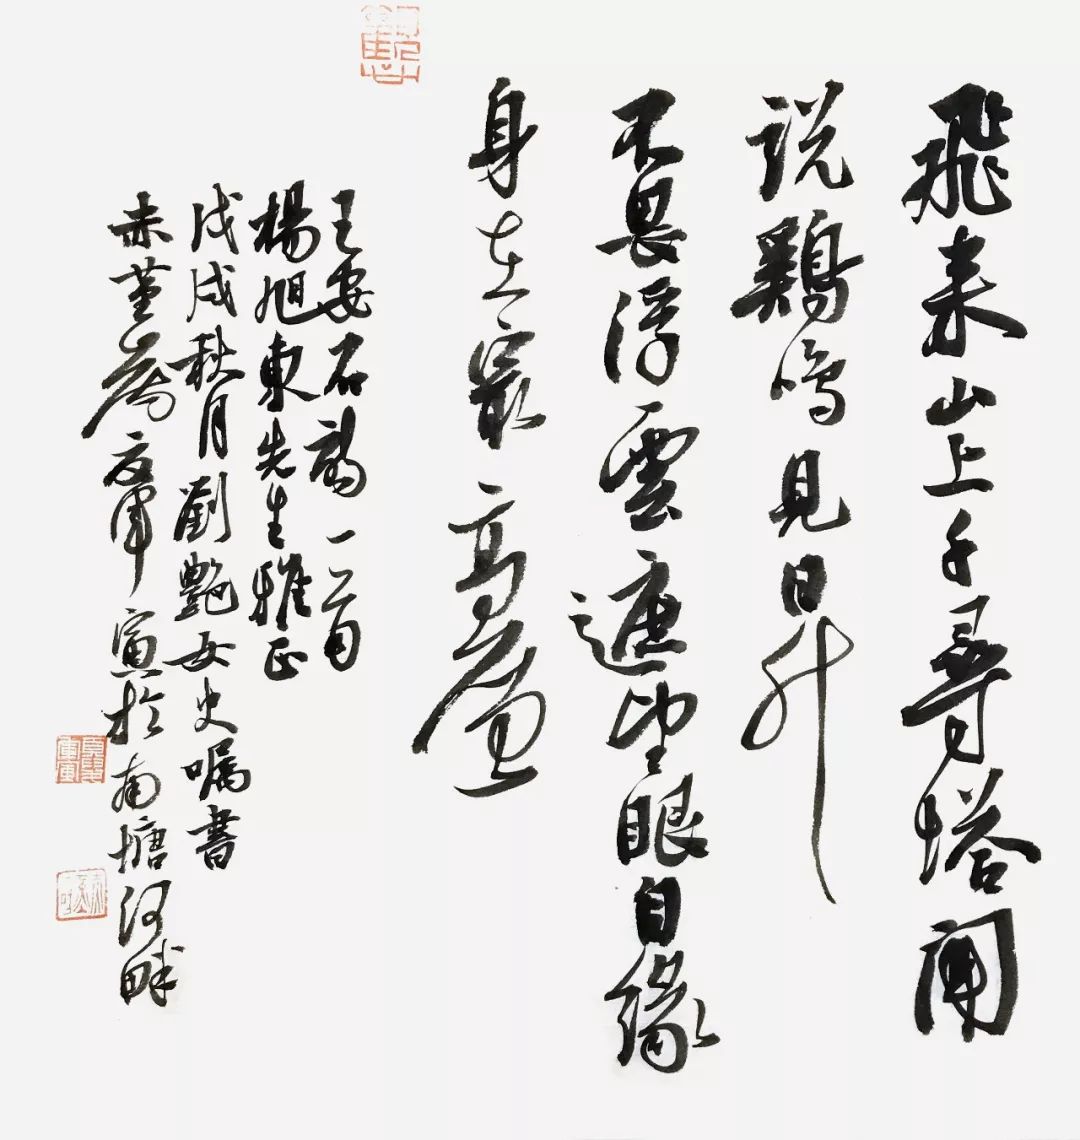 飛来山上千尋塔聞
説鷄鳴見日升
不畏浮雲遮望眼自緣
身在最高層
王安石詩一首
楊旭東先生雅正
戊戌秋月劉艷女史囑書
赤堇於南塘河畔